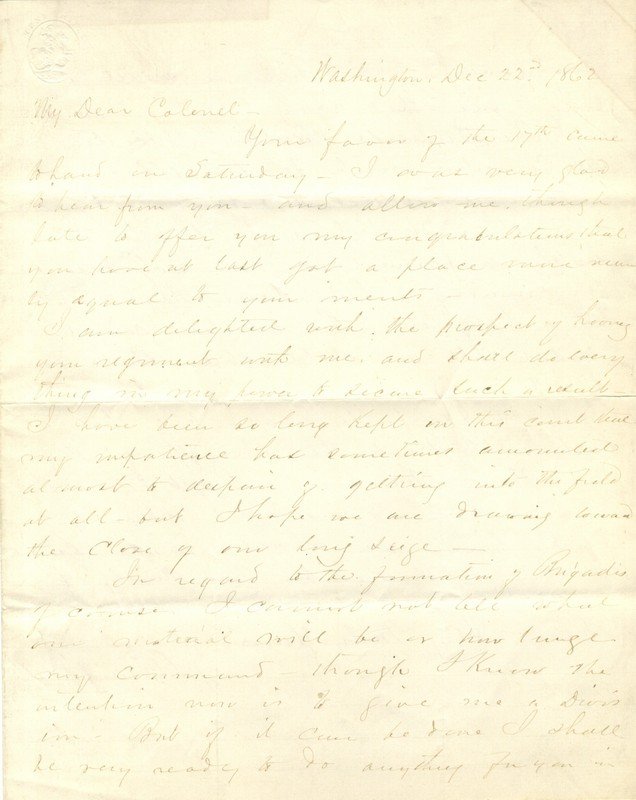 Washington, Dec 22nd 1862
My Dear Colonel -
Your favor of the 17th came
to hand on Saturday - I was very glad
to hear from you - and allow me, though
late to offer you my congratulations that
you have at last got a place more near
ly equal to your merits -
I am delighted with the prospect of having
your regiment with me and shall do every
thing in my power to secure such a result -
I have been so long kept on this court that
my impatience has sometimes amounted
almost to despair of getting into the field
at all - but I hope we are drawing toward
the close of our long seige -
In regard to the formation of Brigades
of course I cannot not tell what
material will be or how large
my command - though I know the
intention now is to give me a Divis
ion - But if it can be done I shall
be very ready to do anything for you in